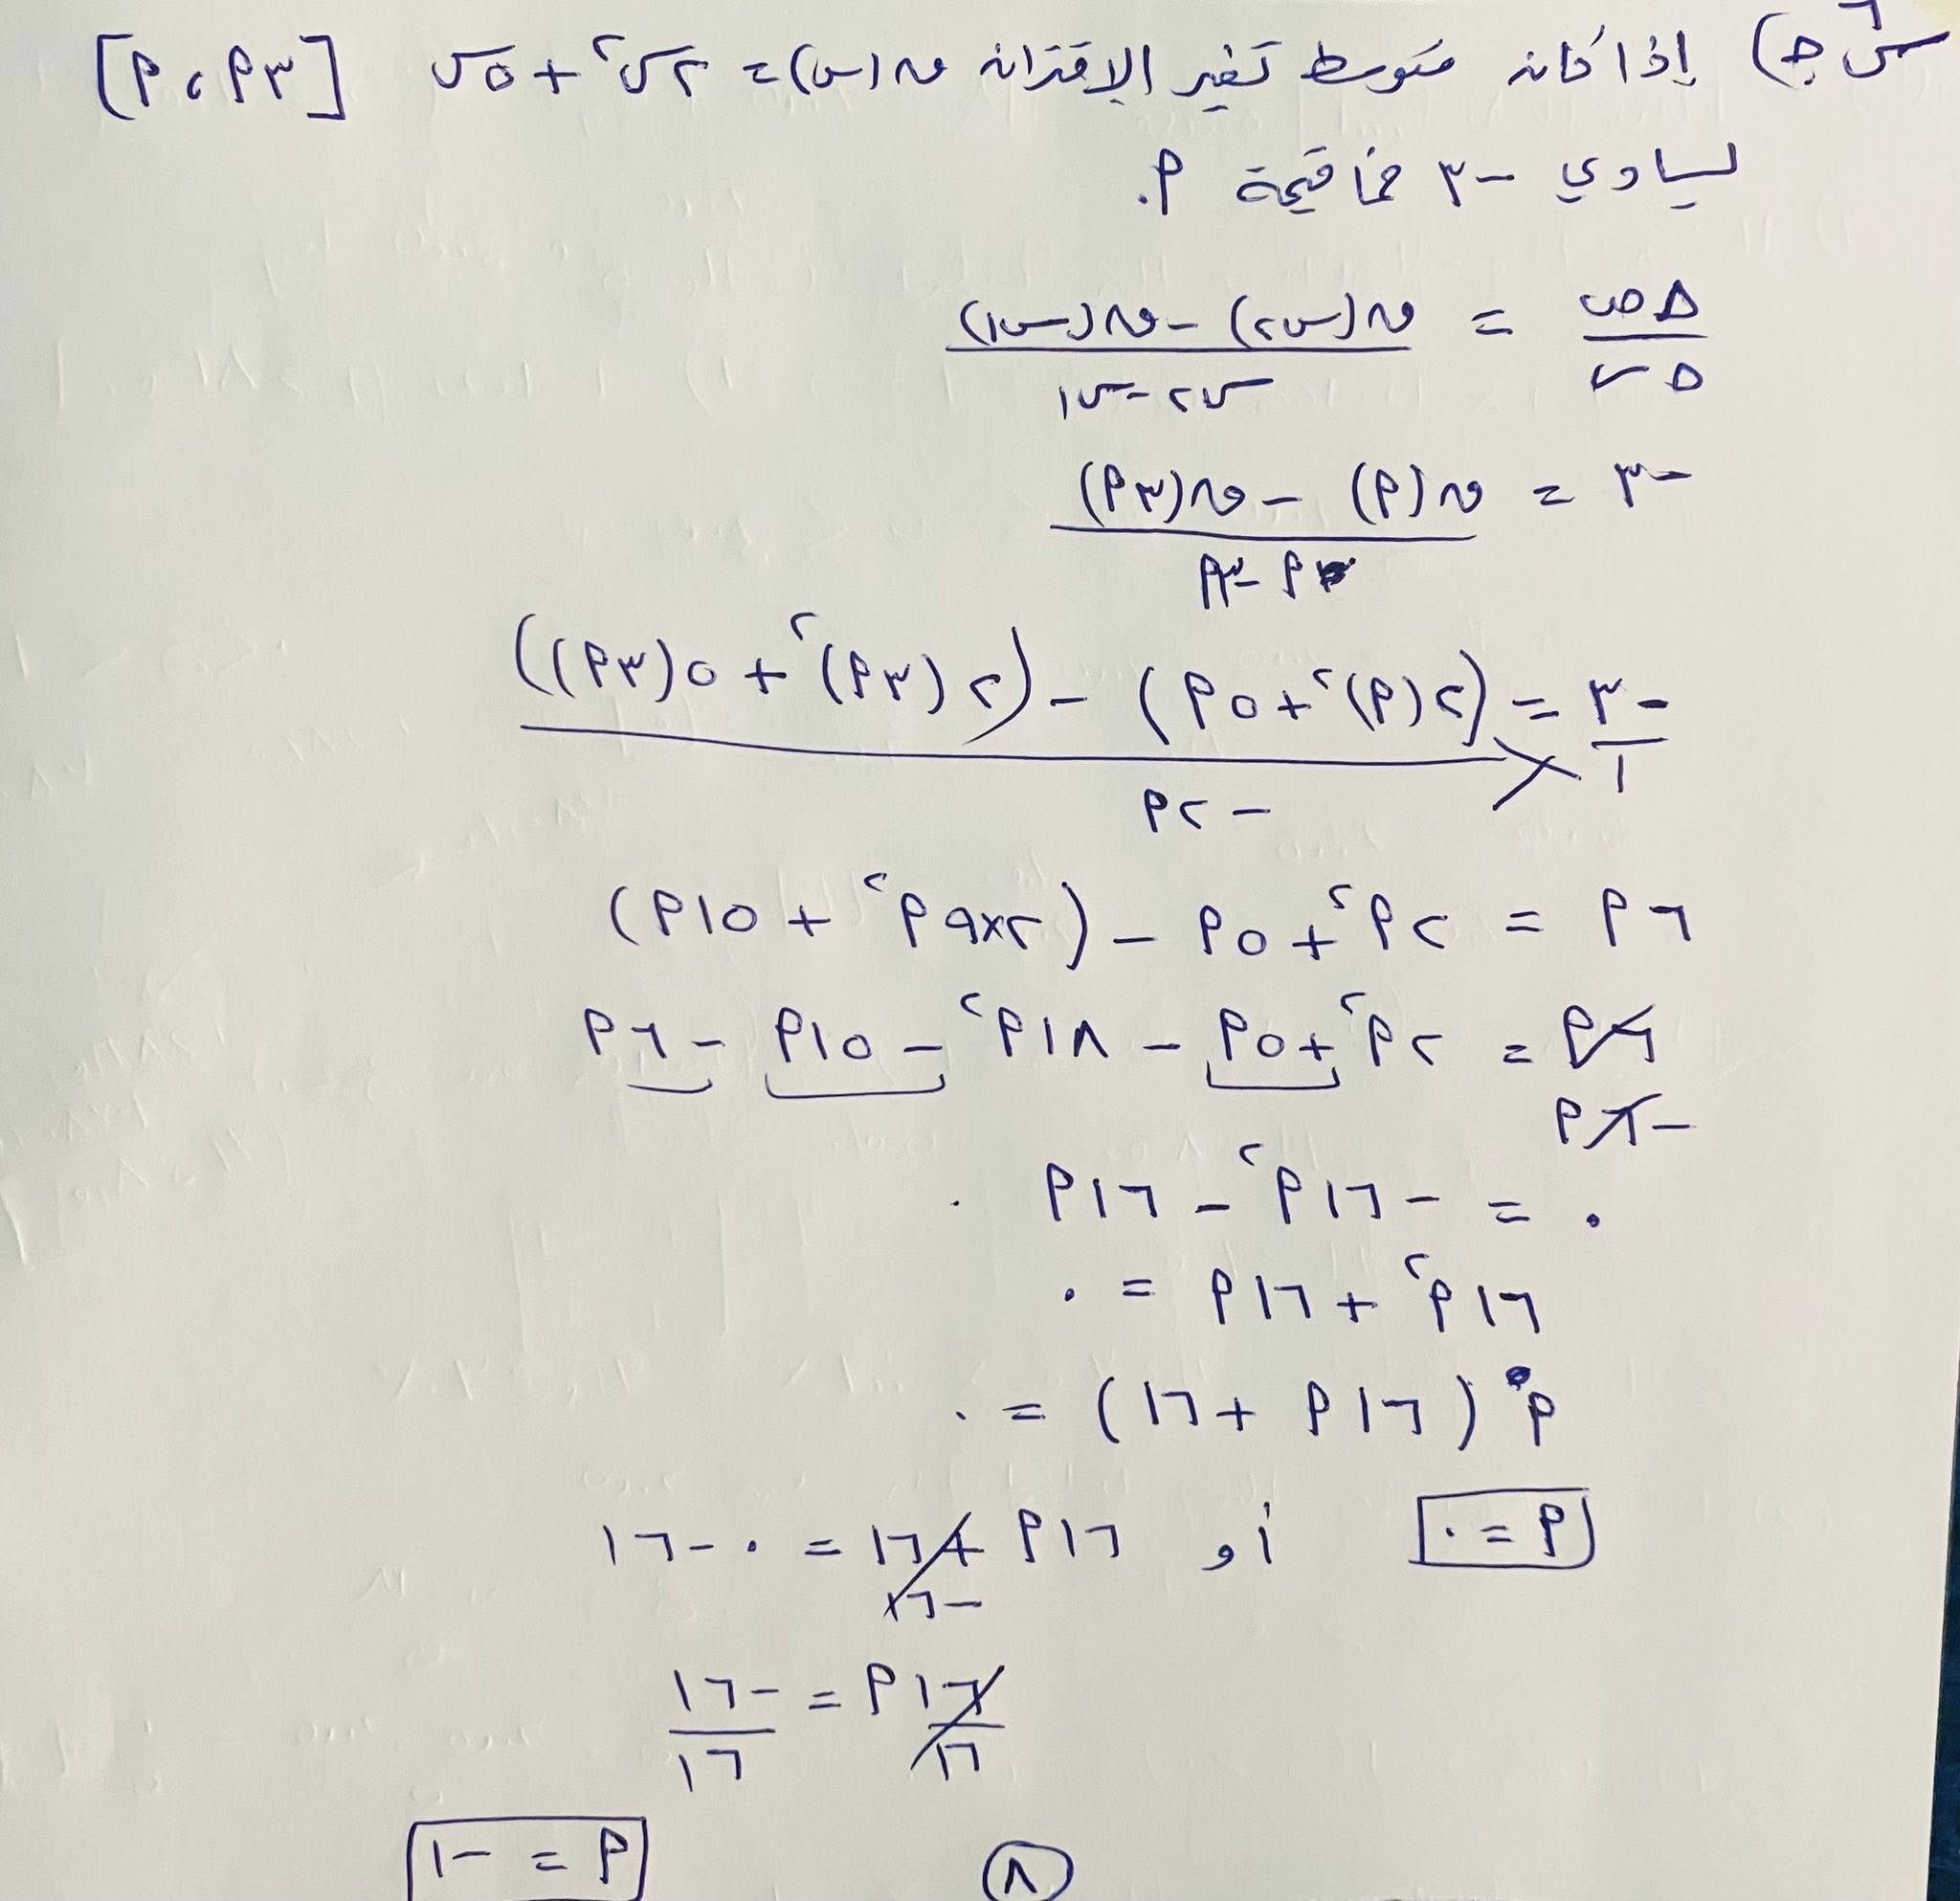 س٦ ج) إذا كان متوسط تغير الإقتران ق(س) = ٢س٢ + ٥س [٣م ، م]
يساوي -٣ فما قيمة م.
Δص/Δس = (ق(س٢) - ق(س١))/(س٢ - س١)
-٣ = (ق(م) - ق(٣م))/(م - ٣م)
-٣/١ = ((٢(م)٢ + ٥م) - (٢(٣م)٢ + ٥(٣م)))/(-٢م)
٦م = ٢م٢ + ٥م - (٢×٩م٢ + ١٥م)
٦م = ٢م٢ + ٥م - ١٨م٢ - ١٥م - ٦م
-٦م
٠ = -١٦م٢ - ١٦م
١٦م٢ + ١٦م = ٠
م(١٦م + ١٦) = ٠
م = ٠ أو ١٦م + ١٦ = ٠ - ١٦
-١٦
١٦م/١٦ = -١٦/١٦
م = -١
٨